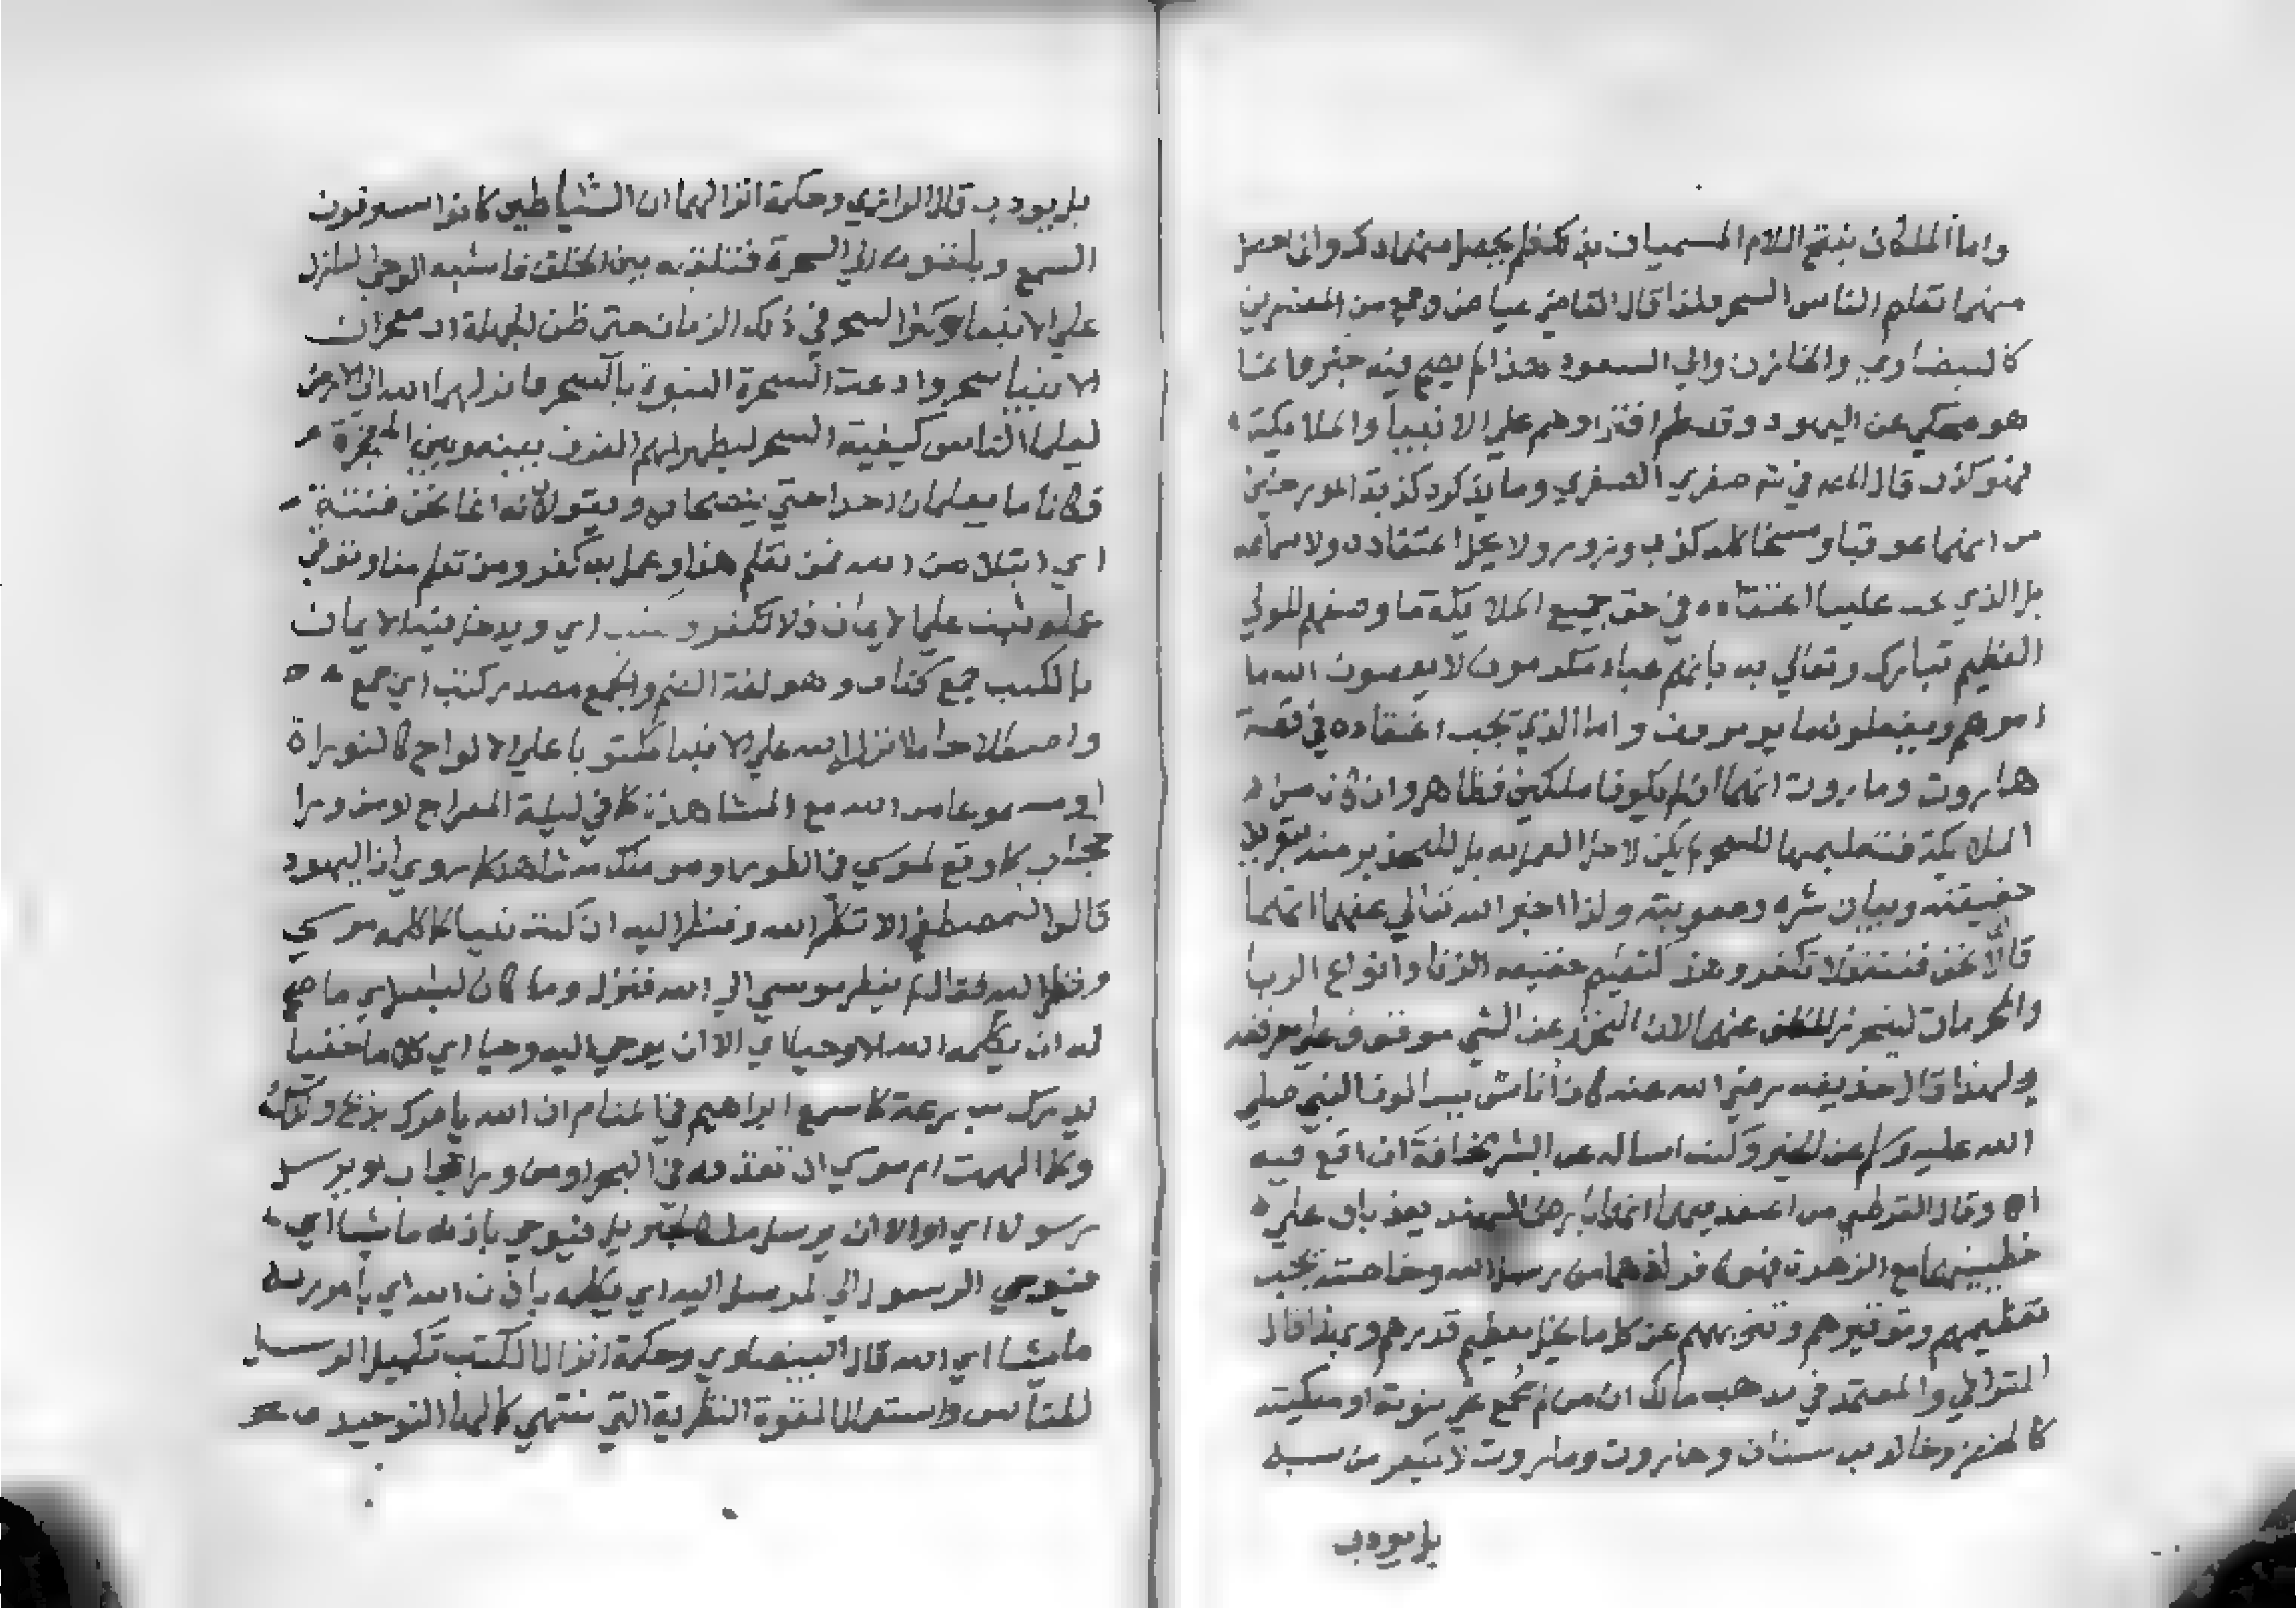 واما الملكان بفتح اللام المسميان بذلك فلم يحصل منهما ذكر وانى
منهما تعلم الناس السحر ولذا قال القاضي عياض وجمع من المفسرين
كالبيضاوي والخازن وابي السعود هذا لم يصح فيه خبر وانما
هو محكي عن اليهود وقد علم افتراوهم علي الانبيا والملايكة
فهو كذب قال المص في شرح صغري الصغري وما يذكره كذبة المورخين
من انهما عوقبا ومسخا كله كذب وزور ولا يحل اعتقاده ولا سماعه
بل الذي يجب علينا اعتقاده في حق جميع الملايكة ما وصفهم المولي
العظيم تبارك وتعالي به بانهم عباد مكرمون لا يعصون الله ما
امرهم ويفعلون ما يومرون واما الذي يجب اعتقاده في قصة
هاروت وماروت انهما ان لم يكونا ملكين فظاهر وان كانا من
الملايكة فتعليمهما للسحر لم يكن لاجل العمل به بل للتحذير منه بتعريف
حقيقته وبيان شره وعقوبته ولذا اخبر الله تعالي عنهما انهما
قالا نحن فتنة فلا تكفر وهذا كتعليم حقيقة الزنا وانواع الربا
والمحرمات ليتحرز المكلف عنها لان التحرز عن الشي موقوف علي معرفته
ولهذا قال حذيفه رضي الله عنه كان اناس يسالون النبي صلي
الله عليه وسلم عن الخير وكنت اساله عن الشر مخافة ان اقع فيه
اه وقال القرطبي من اعتقد انهما بارض الهند يعذبان علي
خطيتهما مع الزهرة فهو كافر لانهما من رسل الله وخاصته يجب
تعظيمهم وتوقيرهم وتنزيههم عن كل ما يخل بعظيم قدرهم وبهذا قال
القرافي والمعتمد في مذهب مالك ان من لم يجمع علي نبوته او ملكيته
كالخضر وخالد بن سنان وهاروت وماروت لا يكفر من سبه
بل يودب
بل يودب قال الرازي وحكمة انزالهما ان الشياطين كانوا يسترقون
السمع ويلقونه الي السحرة فتلقيه بين الخلق فاشبه الوحي المنزل
علي الانبيا وكثر السحر في ذلك الزمان حتى ظن الجهلة ان معجزات
الانبيا سحر وادعت السحرة النبوة بالسحر فانزلهما الله الي الارض
ليعلما الناس كيفية السحر ليظهر لهم الفرق بينه وبين المعجزة
وكانا ما يعلمان احدا حتي ينصحاه ويقولا له انما نحن فتنة
اي ابتلا من الله فمن تعلم هذا وعمل به كفر ومن تعلم منا وتوقي
عمله ثبت علي الايمان فلا تكفر وكتبه اي ويدخل فيه الايمان
بالكتب جمع كتاب وهو لغة الضم والجمع مصدر كتب اي جمع
واصطلاحا ما انزل الله علي الانبيا مكتوبا علي الالواح كالتوراة
او مسموعا من الله مع المشاهدة كما في ليلة المعراج او من ورا
حجاب كما وقع لموسي في الطور او من ملك مشاهد كما روي ان اليهود
قالوا للمصطفي الا تكلم الله وتنظر اليه ان كنت نبيا كما كلمه موسي
ونظر اليه فقال لم ينظر موسي الي الله فنزل وما كان لبشر اي ما صح
له ان يكلمه الله الا وحيا اي الا ان يوحي اليه وحيا اي كلاما خفيا
يدرك بسرعة كما سمع ابراهيم في المنام ان الله يامرك بذبح ولدك
وكما الهمت ام موسي ان تقذفه في البحر او من ورا حجاب او يرسل
رسولا اي او الا ان يرسل ملكا كجبريل فيوحي باذنه ما يشا اي
فيوحي الرسول الي المرسل اليه اي يكلمه باذن الله اي بامر ربه
ما يشا اي الله قال البيضاوي وحكمة انزال الكتب تكميل الرسل
للناس واستعمال القوة النظرية التي منتهي كمالها التوحيد